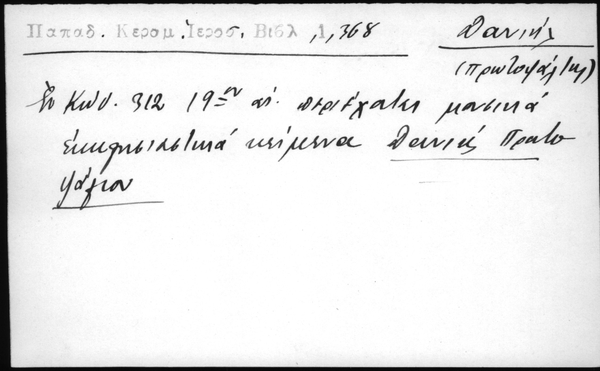 Παπαδ. Κεραμ. Ιεροσ. Βιβλ ,1,368
Δανιήλ
(πρωτοψάλτης)
Εν Κώδ. 312 19ου αι. περιέχονται μουσικά
εκκλησιαστικά κείμενα Δανιήλ Πρωτο
ψάλτου